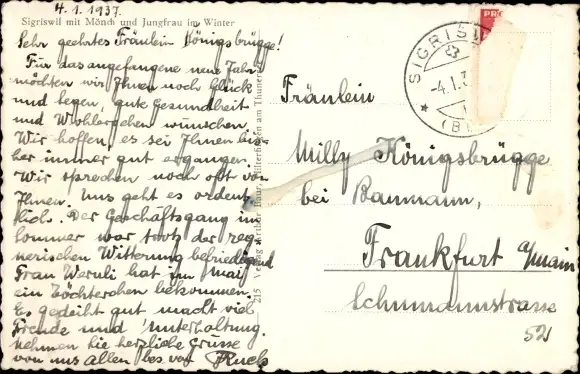 4.1.1937.
Sigriswil mit Mönch und Jungfrau im Winter
Sehr geehrtes Fräulein Königsbrügge!
Für das angefangene neue Jahr
möchten wir Ihnen noch Glück
und Segen, gute Gesundheit
und Wohlergehen wünschen.
Wir hoffen, es sei Ihnen bis-
her immer gut ergangen.
Wir sprechen noch oft von
Ihnen. Uns geht es ordent-
lich. Der Geschäftsgang im
Sommer war trotz der reg-
nerischen Witterung befriedigend
Frau Weruli hat im Mai
ein Töchterchen bekommen.
Es gedeiht gut macht viel
Freude und Unterhaltung.
nehmen Sie herzliche Grüsse
von uns Allen bes. von
215 Verlag Arthur Baur, Hilterfingen am Thunersee
SIGRIS
-4.1.3
(BE
PR
Fräulein
Milly Königsbrügge
bei Baumann,
Frankfurt a/main
Schumannstrasse
52